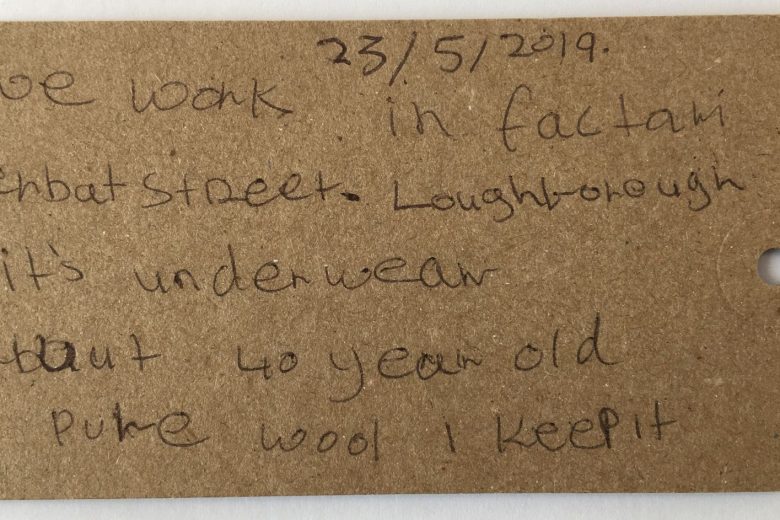 23/5/2019.
ve work in factari
enbat street. Loughborough
it's underwear
baut 40 year old
pure wool I keep it